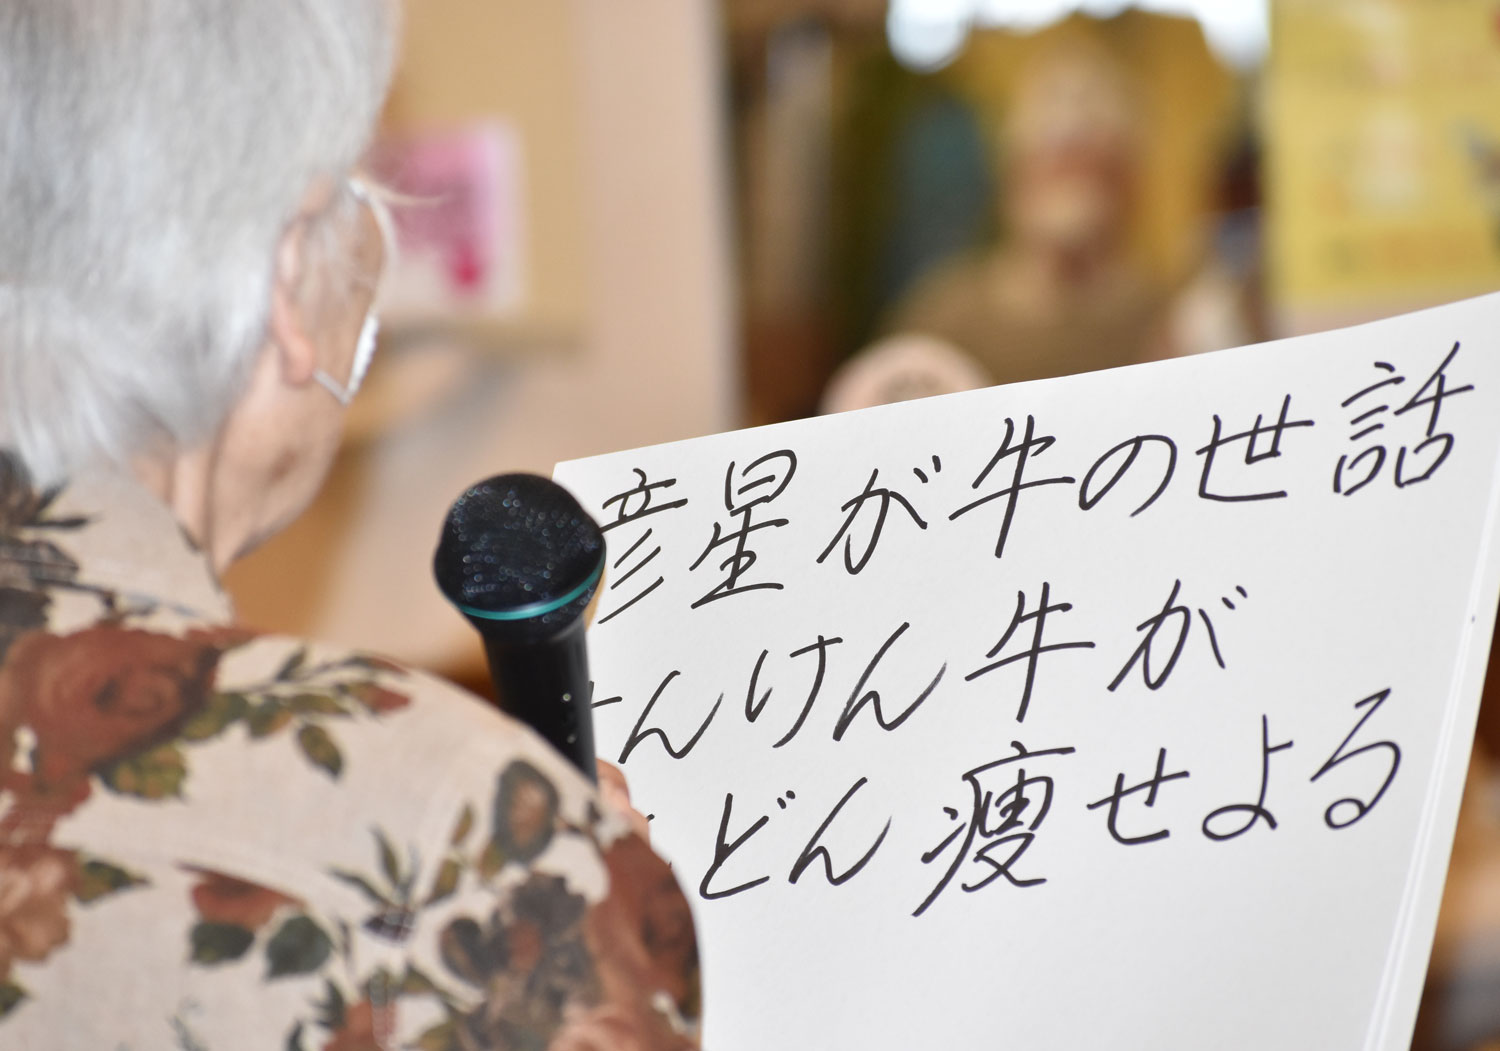 彦星が牛の世話
んけん牛が
どん痩せよる